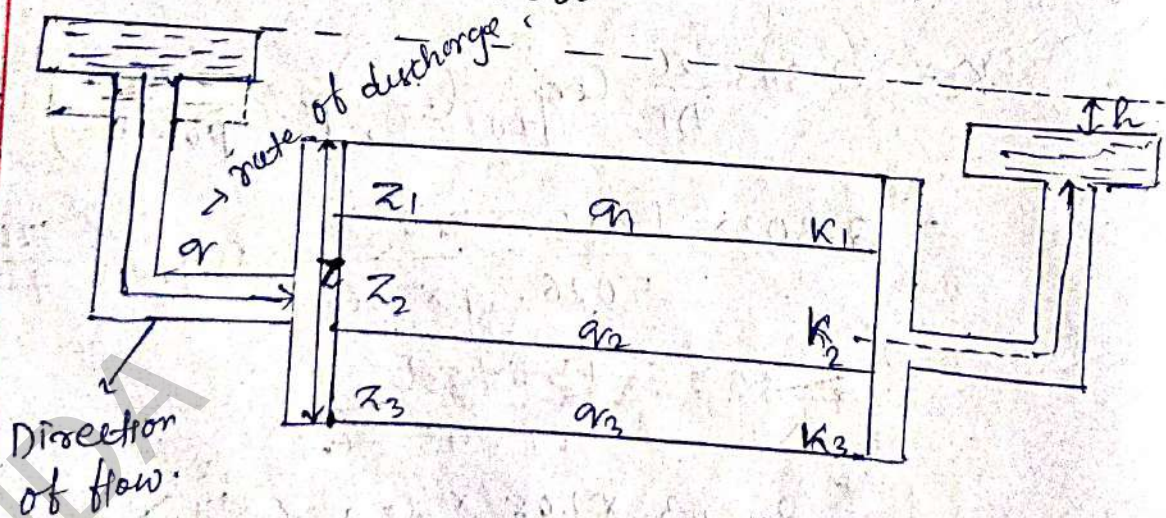 q → rate of discharge.
h
Z1 q1 K1
Z
Z2 q2 K2
Z3 q3 K3
Direction
of flow.